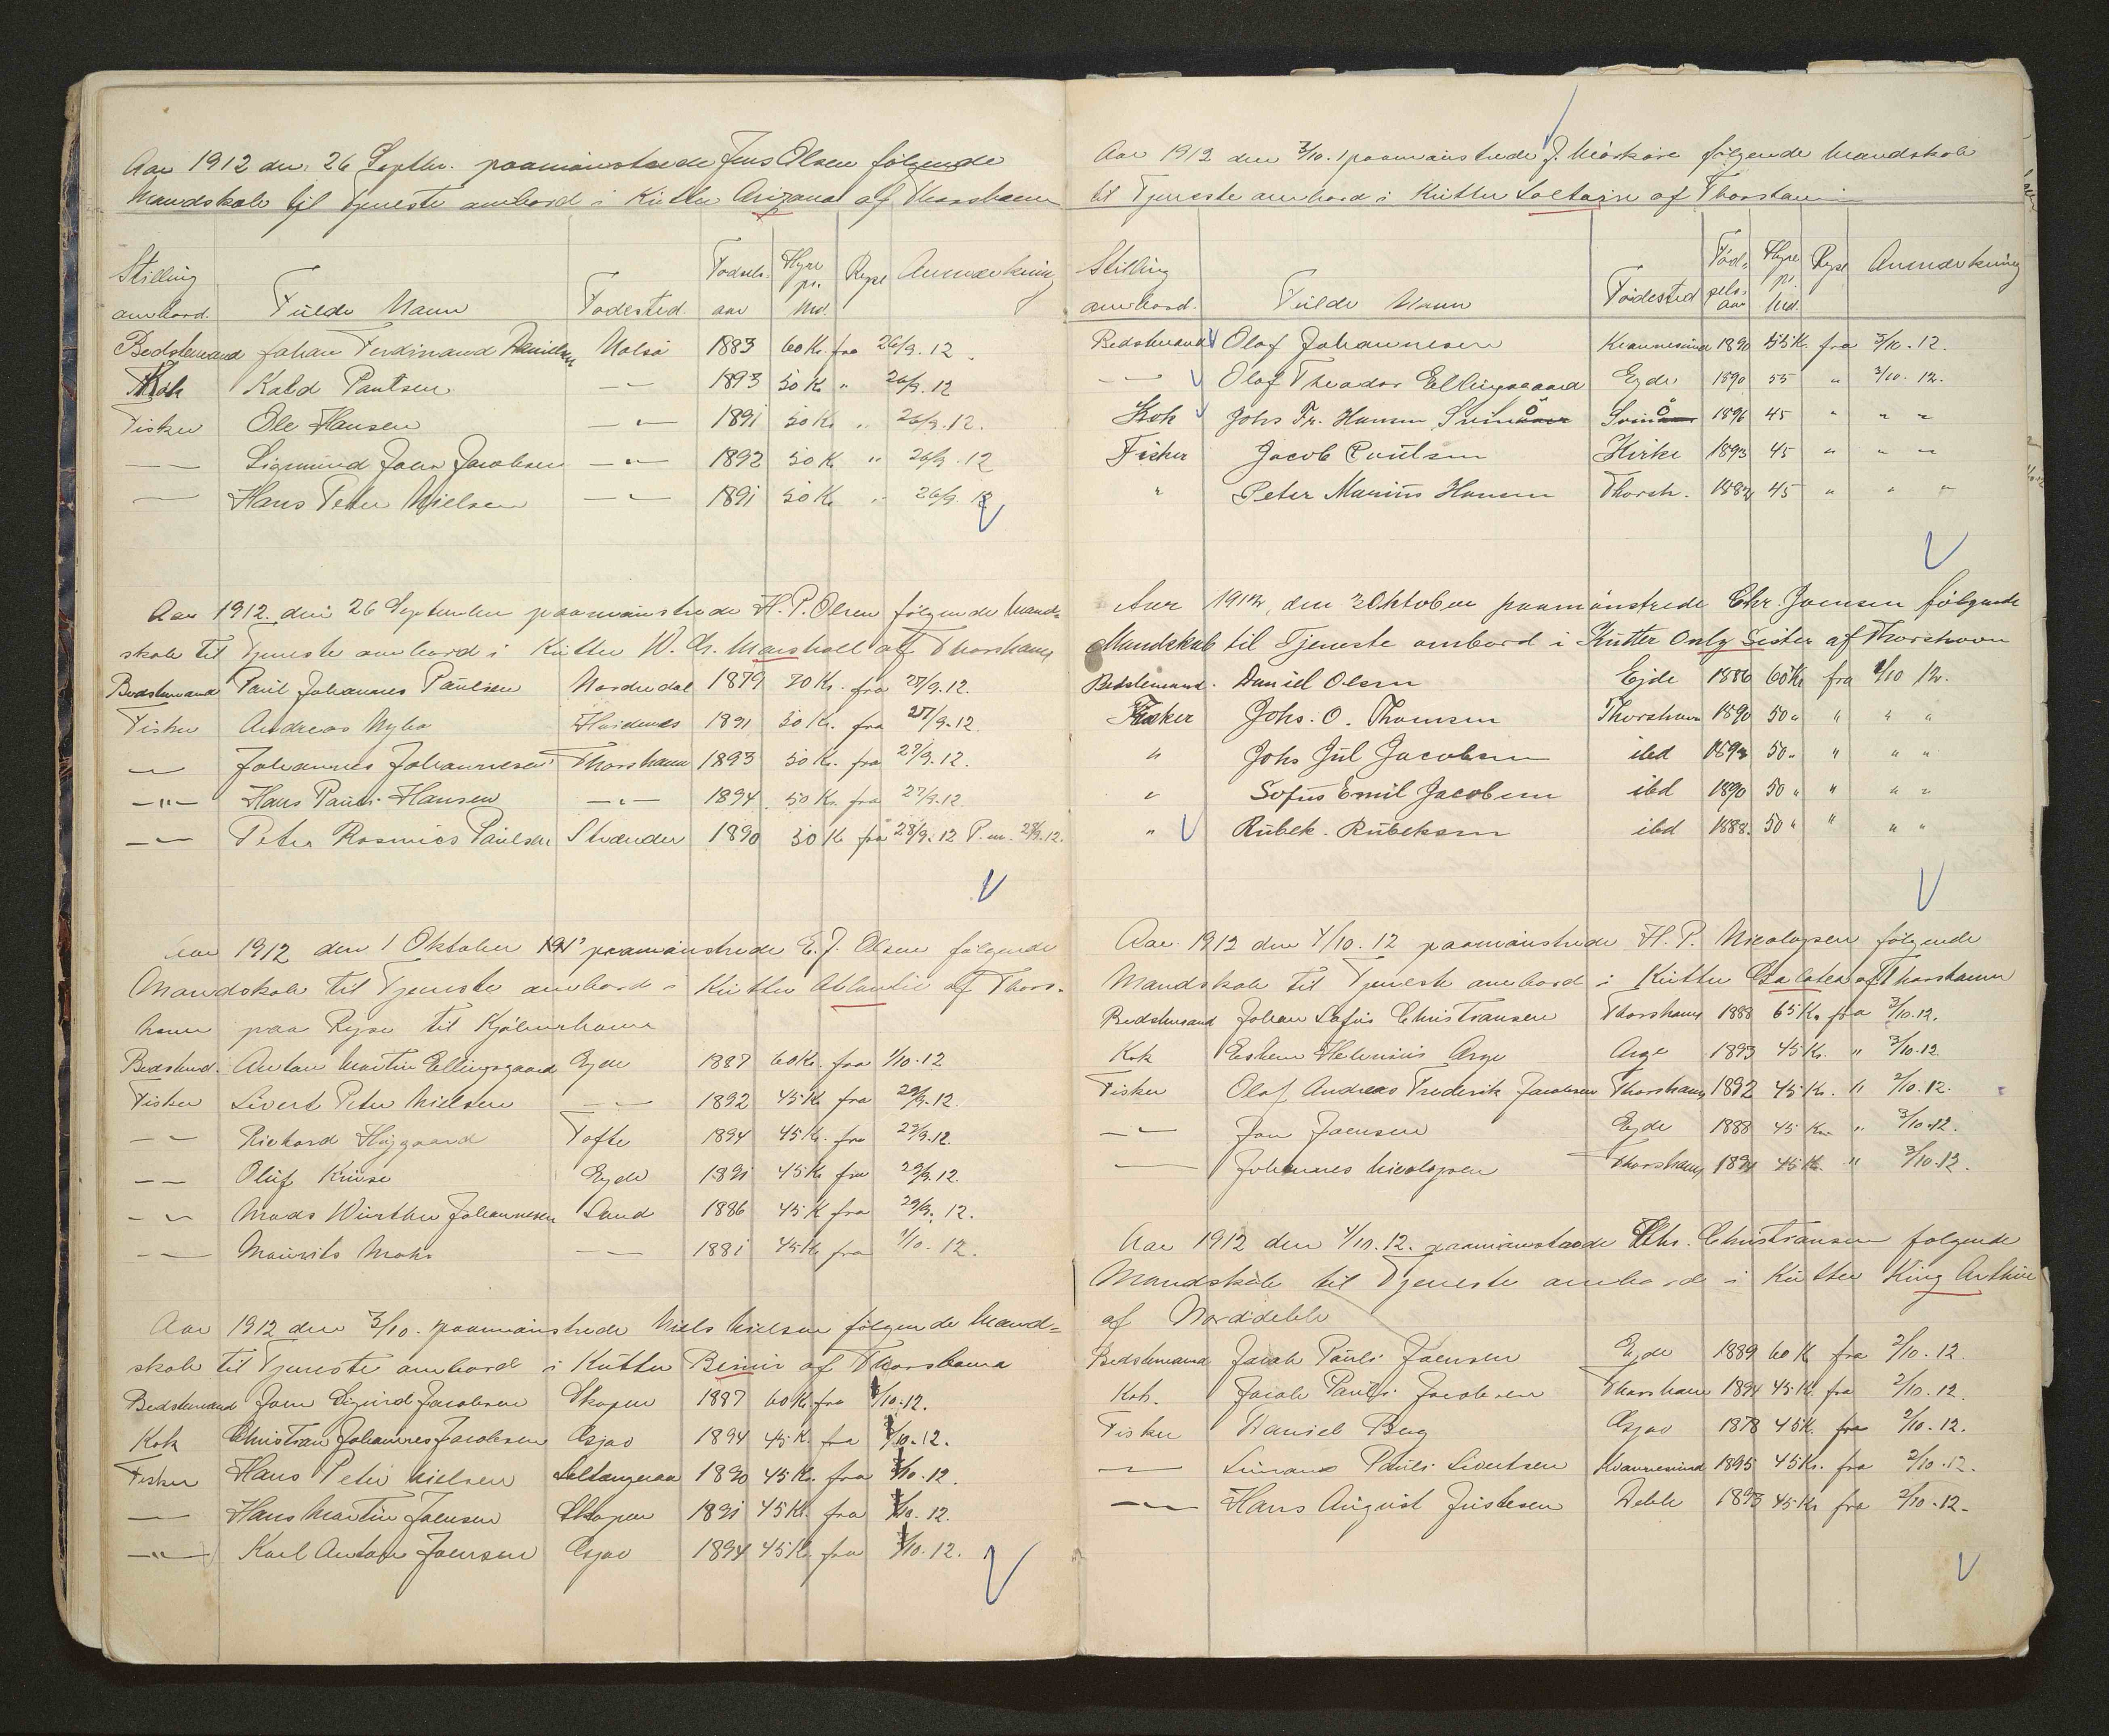 Aar 1912 den 26 Septbr. paamønstrede Jens Olsen følgende
Mandskab til Tjeneste ombord i Kutter Arizona af Thorshavn
Stilling ombord. Fulde Navn Fødested. Fødsels aar Hyre pr. Md. Rejse Anmærkning
Bedstemand Johan Ferdinand Danielsen Nolsø 1883 60 Kr. fra 26/9. 12.
Kok Kald Paulsen —"— 1893 50 Kr " 26/9. 12
Fisker Ole Hansen —"— 1891 50 Kr. " 26/9. 12.
—"— Sigmund Joen Jacobsen —"— 1892 50 K " 26/9. 12
—"— Hans Peter Nielsen —"— 1891 50 Kr. " 26/9. 12
Aar 1912. den 26 September paamønstrede H. P. Olsen følgende Mand-
skab til Tjeneste ombord i Kutter W. H. Marshall af Thorshavn
Bedstemand Paul Johannes Paulsen Nordredal 1879 70 Kr. fra 27/9. 12.
Fisker Andreas Nybo Hvidenes 1891 50 Kr. fra 27/9. 12.
—"— Johannes Johannesen Thorshavn 1893 50 Kr. fra 27/9. 12.
—"— Hans Pauli Hansen —"— 1894 50 Kr. fra 27/9. 12
—"— Peter Rasmus Paulsen Strænder 1890 50 K fra 28/9. 12 P. m. 28/9. 12.
Aar 1912 den 1 Oktober paamønstrede E. J. Olsen følgende
Mandskab til Tjeneste ombord i Kutter Atlantic af Thors-
havn paa Rejse til Kjøbenhavn
Bedstemd. Anton Martin Ellingsgaard Ejde 1887 60 Kr. fra 1/10. 12
Fisker Sivert Peter Nielsen —"— 1892 45 Kr fra 29/9. 12.
—"— Richard Højgaard Tofte 1894 45 Kr. fra 29/9. 12.
—"— Oluf Kruse Ejde 1891 45 Kr fra 29/9. 12.
—"— Mads Winther Johannesen Sand 1886 45 K fra 29/9. 12.
—"— Maurits Mohr —"— 1881 45 Kr fra 1/10. 12.
Aar 1912 den 3/10. paamønstrede Niels Nielsen følgende Mand=
skab til Tjeneste ombord i Kutter Beinir af Thorshavn
Bedstemand Joen Sigurd Jacobsen Skopen 1887 60 Kr. fra /10. 12.
Kok Christian Johannes Jacobsen Gjov 1894 45 K. fra /10. 12.
Fisker Hans Peter Nielsen Saltangeraa 1890 45 Kr. fra /10. 12.
—"— Hans Martin Joensen Skopen 1891 45 Kr. fra /10. 12.
—"— Karl Anton Joensen Gjov 1894 45 Kr. fra /10. 12.
Aar 1912 den 3/10. paamønstrede J. Mørkøre følgende Mandskab
til Tjeneste ombord i Kutter af Thorshavn
Stilling ombord. Fulde Navn Fødested Fød-sels-aar Hyre pr. Md. Rejse Anmærkning
Bedstemand Olaf Johannesen Kvannesund 1890 55 K. fra 3/10. 12.
—"— Olaf Theodor Ellingsgaard Ejde 1890 55 " 3/10. 12.
Kok Johs Fr. Hansen Svinø Svinø 1896 45 " " "
Fisker Jacob Poulsen Kirke 1893 45 " " "
" Peter Marius Hansen Thorsh. 1882 45 " " "
Aar 1912, den 2 Oktober paamønstrede Chr. Joensen følgende
Mandskab til Tjeneste ombord i Kutter Only Sister af Thorshavn
Bedstemand. Daniel Olsen Ejde 1886 60 Kr fra /10 12.
Fisker Johs. O. Thomsen Thorshavn 1890 50 " " " "
" Johs Jul Jacobsen ibd 1892 50 " " " "
" Sofus Emil Jacobsen ibd 1890 50 " " " "
" Rubek. Rubeksen ibd 1888 50 " " " "
Aar 1912 den 4/10. 12 paamønstrede H. P. Nicolajsen følgende
Mandskab til Tjeneste ombord i Kutter Galatea af Thorshavn
Bedstemand Johan Sofus Christiansen Thorshavn 1888 65 Kr. fra 3/10. 12.
Kok Esbern Helenius Arge Arge 1893 45 Kr. " 3/10. 12
Fisker Olaf Andreas Frederik Jacobsen Thorshavn 1892 45 Kr. " 2/10. 12.
—"— Jon Joensen Ejde 1888 45 Kr. " 3/10. 12.
—"— Johannes Nicolajsen Thorshavn 1891 45 Kr. " 3/10. 12.
Aar 1912 den 4/10. 12. paamønstrede Chr. Christiansen følgende
Mandskab til Tjeneste ombord i Kutter King Arthur
af Norddeble
Bedstemand Jacob Pauli Joensen Ejde 1889 60 K fra 2/10. 12.
Kok. Jacob Pauli Jacobsen Thorshavn 1894 45 Kr. fra 2/10. 12.
Fisker Daniel Berg Gjov 1878 45 K. fra 2/10. 12.
—"— Simon Pauli Sivertsen Kvannesund 1895 45 Kr. fra 2/10. 12.
—"— Hans August Justesen Deble 1893 45 Kr fra 2/10. 12.